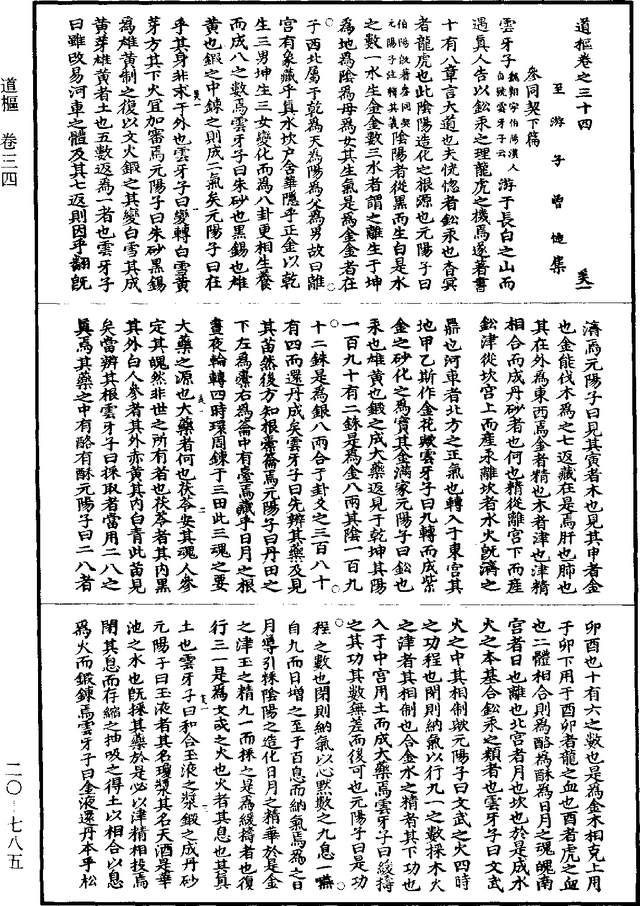 道樞卷之三十四
至游子曾慥集 美一
參同契下篇
雲牙子 魏翱字伯陽漢人自號雲牙子云 游于長白之山而
遇真人告以鈆汞之理龍虎之機焉遂著書
十有八章言大道也夫恍惚者鈆汞也杳冥
者龍虎也此陰陽造化之根源也元陽子曰
伯陽既著參同契元陽子注轉其義 陰陽者從黑而生白是水
之數一水生金金數三水者謂之離生于坤
為地為陰為母為女其生氣是為金金者在
子西北屬于乾為天為陽為父為男故曰離
宮有象藏乎真水坎戶含華隱乎正金以乾
生三男坤生三女變化而為八卦更相生養
而成八之數焉雲牙子曰朱砂也黑錫也雄
黃也鍜之中鍊之則成二氣矣元陽子曰在
乎其身非求于外也雲牙子曰變轉白雪黃
芽方其下火宜加審焉元陽子曰朱砂黑錫
為雄黃制之復以文火鍜之其變白雪其成
黃芽雄黃者土也五數返為一者也雲牙子
曰雖改易河車之體及其七返則因乎翻既
濟焉元陽子曰見其寅者木也見其申者金
也金能伐木為之七返藏在是焉肝也肺也
其在外為東西焉金者精也木者津也津精
相合而成丹砂者也何也精從離宮下而產
鈆津從坎宮上而產汞離坎者水火既濟之
噐也河車者北方之正氣也轉入于東宮其
地甲乙斯作金花𤾉雲牙子曰九轉而成紫
金之砂化之為寶其金滿家元陽子曰鈆也
汞也雄黃也鍜之成大藥返見于乾坤其陽
一百九十有二銖是為金八兩其陰一百九
十二銖是為銀八兩合于卦爻之三百八十
有四而還丹成矣雲牙子曰先辨其藥及見
其苗然後方知根蔕崙焉元陽子曰丹田之
下左為蔕右為崙中有臺焉藏乎日月之根
晝夜輪轉四時環周鍊于三田此三魂之要
大藥之源也大藥者何也茯苓安其魂人參
定其魄然非世之所有者也茯苓者其内黑
其外白人參者其外赤黃其内白青此苗見
矣當辨其根雲牙子曰採取者當用二八之
真焉其藥之中有酪有酥元陽子曰二八者
卯酉也十有六之數也是為金木相克上用
于卯下用于酉卯者龍之血也酉者虎之血
也二體相合則為酪為酥為日月之魂魄南
宮者日也離也北宮者月也坎也於是成水
火之本基合鈆汞之類者也雲牙子曰文武
火之中其相制𤾉元陽子曰文武之火四時
之功程也閉則納氣以行九一之數採木火
之津者其相制也合金水之精者其下功也
入于中宮用土而成大藥焉雲牙子曰緩擣
之其功其數無差而後可也元陽子曰是功
程之數也閉則納氣以心默數之九息一嚥
自九而日增之至于百息而納氣焉為之日
月導引採陰陽之造化日月之精華於是金
之津玉之精九一而採之是為緩擣者也復
行三一是為文或之火也火者其息也其真
土也雲牙子曰和合玉液之漿鍜之成丹砂
元陽子曰玉液者其名瓊漿其名天酒是華
池之水也既採其藥於是必以津精相投焉
閉其息而存縮之抽吸之得土以相合以息
為火而鍜鍊焉雲牙子曰金液還丹本乎松
道樞 卷三四
二〇─七八五